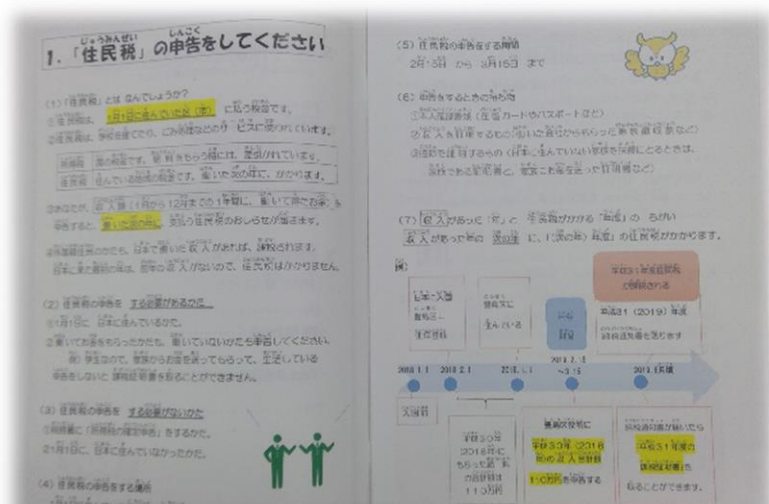 じゅうみんぜい しんこく
1.「住民税」の申告をしてください
(1)「住民税」とは なんでしょうか?
①住民税は、1月1日に住んでいた区(市)に払う税金です。
②住民税は、学校を建てたり、ごみ処理などのサービスに使われています。
所得税 国の税金です。給料をもらう時には、差引かれています。
住民税 住んでいる地域の税金です。働いた次の年に、かかります。
③あなたが、収入額(1月から12月までの1年間に、働いて得たお金)を
申告すると、働いた次の年に、支払う住民税のおしらせが届きます。
日本で働いた収入があれば、課税されます。
日本に来た最初の年は、前年の収入がないので、住民税はかかりません。
(2)住民税の申告を する必要があるかた
①1月1日に 日本に住んでいるかた。
②働いてお金をもらったかたも、働いていないかたも申告してください。
例)学生なので、家族からお金を送ってもらって、生活している
申告をしないと 課税証明書を取ることができません。
(3)住民税の申告を する必要がないかた
①税務署に「所得税の確定申告」をするかた。
②1月1日に、日本に住んでいなかったかた。
(4)住民税の申告をする場所
(5)住民税の申告をする期間
2月16日 から 3月15日 まで
(6)申告をするときの持ち物
①本人確認書類(在留カードやパスポートなど)
②収入を証明するもの(働いた会社からもらった源泉徴収票など)
(日本に住んでいない家族を扶養にとるときは、
家族である証明書と、家族にお金を送った証明書など)
(7)収入があった「年」と 住民税がかかる「年度」の ちがい
収入があった年の 次の年 に、「(次の年)年度」の住民税がかかります。
例)
日本に入国
豊島区に
住民登録
豊島区に
住んでいる
平成31年度住民税
が課税される
平成31(2019)年度
2018.1.1
2018.2.1
2019.1.1
2019.2.16
~3.15
入国前
平成30年
2018年に
もらった給料
の合計額は
110万円
豊島区役所に
平成30年(2018
年)の収入合計額
110万円を申告する
納税通知書が届いたら
「平成31年度の
課税証明書」を
取ることができます。